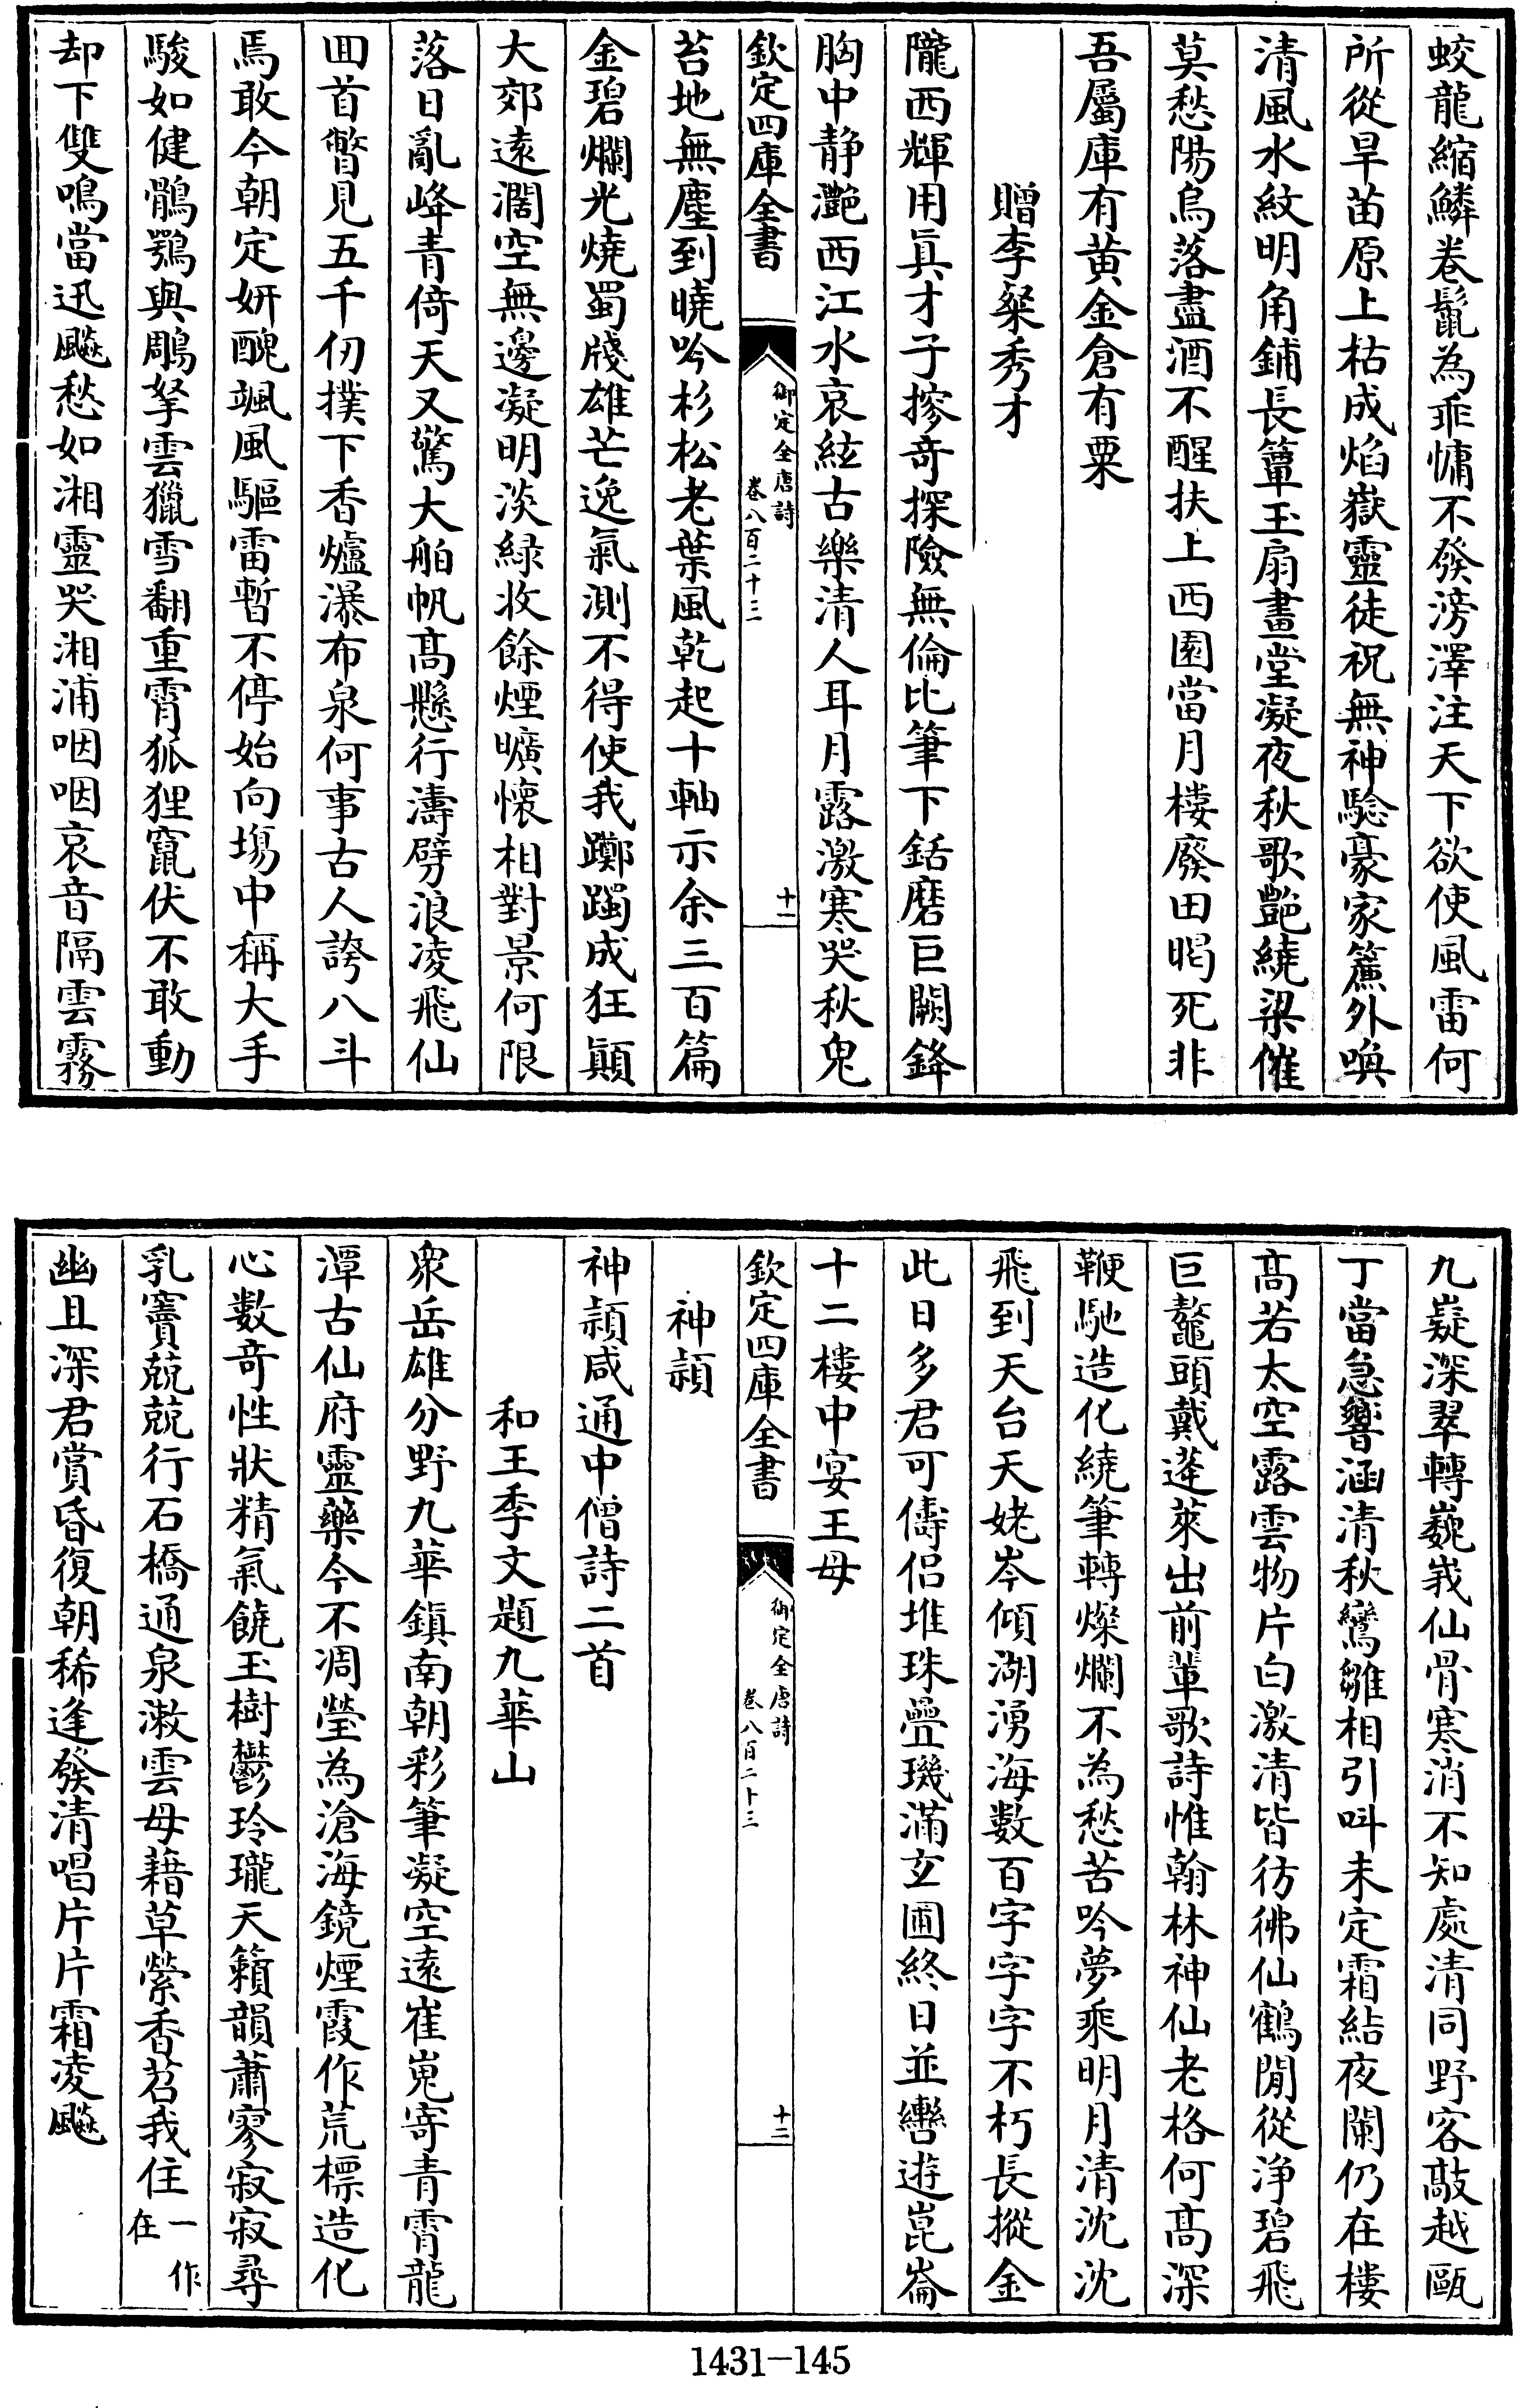 蛟龍縮鱗卷鬣為乖慵不發滂澤注天下欲使風雷何
所從旱苗原上枯成焰嶽靈徒祝無神驗豪家簾外喚
清風水紋明角鋪長簟玉扇畫堂凝夜秋歌艶繞梁催
莫愁陽烏落盡酒不醒扶上西園當月樓廢田暍死非
吾屬庫有黃金倉有粟
贈李粲秀才
隴西輝用真才子搜奇探險無倫比筆下銛磨巨闕鋒
胸中静灔西江水哀絃古樂清人耳月露激寒哭秋鬼
欽定四庫全書
御定全唐詩
卷八百二十三
十一
苔地無塵到曉吟杉松老葉風乾起十軸示余三百篇
金碧爛光燒蜀牋雄芒逸氣測不得使我躑躅成狂顛
大郊遠濶空無邊凝明淡緑收餘煙曠懷相對景何限
落日亂峰青倚天又驚大舶帆髙懸行濤劈浪凌飛仙
回首瞥見五千仞撲下香爐瀑布泉何事古人誇八斗
焉敢今朝定妍醜颯風驅雷暫不停始向塲中稱大手
駿如健鶻鶚與鵰拏雲獵雪翻重霄狐狸竄伏不敢動
却下雙鳴當迅飈愁如湘靈哭湘浦咽咽哀音隔雲霧
九嶷深翠轉巍峩仙骨寒消不知處清同野客敲越甌
丁當急響涵清秋鸞雛相引呌未定霜結夜闌仍在樓
髙若太空露雲物片白激清皆彷彿仙鶴閒從浄碧飛
巨鼇頭戴蓬萊出前輩歌詩惟翰林神仙老格何髙深
鞭馳造化繞筆轉燦爛不為愁苦吟夢乘明月清沈沈
飛到天台天姥岑傾湖湧海數百字字字不朽長摐金
此日多君可儔侣堆珠疊璣滿玄圃終日並轡遊崑崙
十二樓中宴王母
欽定四庫全書
御定全唐詩
卷八百二十三
十二
神頴
神頴咸通中僧詩二首
和王季文題九華山
衆岳雄分野九華鎮南朝彩筆凝空遠崔嵬寄青霄龍
潭古仙府靈藥今不凋瑩為滄海鏡煙霞作荒標造化
心數奇性狀精氣饒玉樹鬱玲瓏天籟韻蕭寥寂寂尋
乳竇兢兢行石橋通泉漱雲母藉草縈香苕我住一作在
幽且深君賞昏復朝稀逢發清唱片片霜凌飈
1431-145